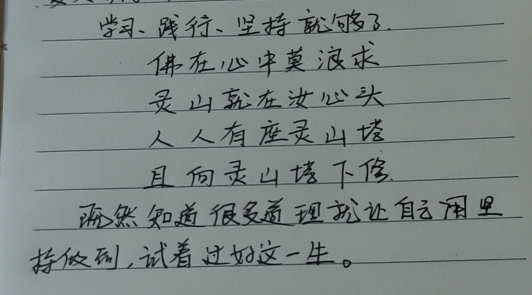 学习、践行、坚持就够了.
佛在心中莫浪求
灵山就在汝心头
人人有座灵山塔
且向灵山塔下修.
既然知道很多道理就让自己用坚
持做到,试着过好这一生。